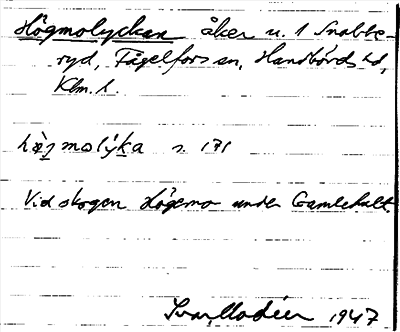 Högmolyckan åker u. 1 Snabbe-
ryd, Fågelfors sn, Handbörds hd,
Klm. l.
hø̀ʒmolýka s. 171
Vid skogen Högemo under Gamlehult.
Ivar Modéer 1947